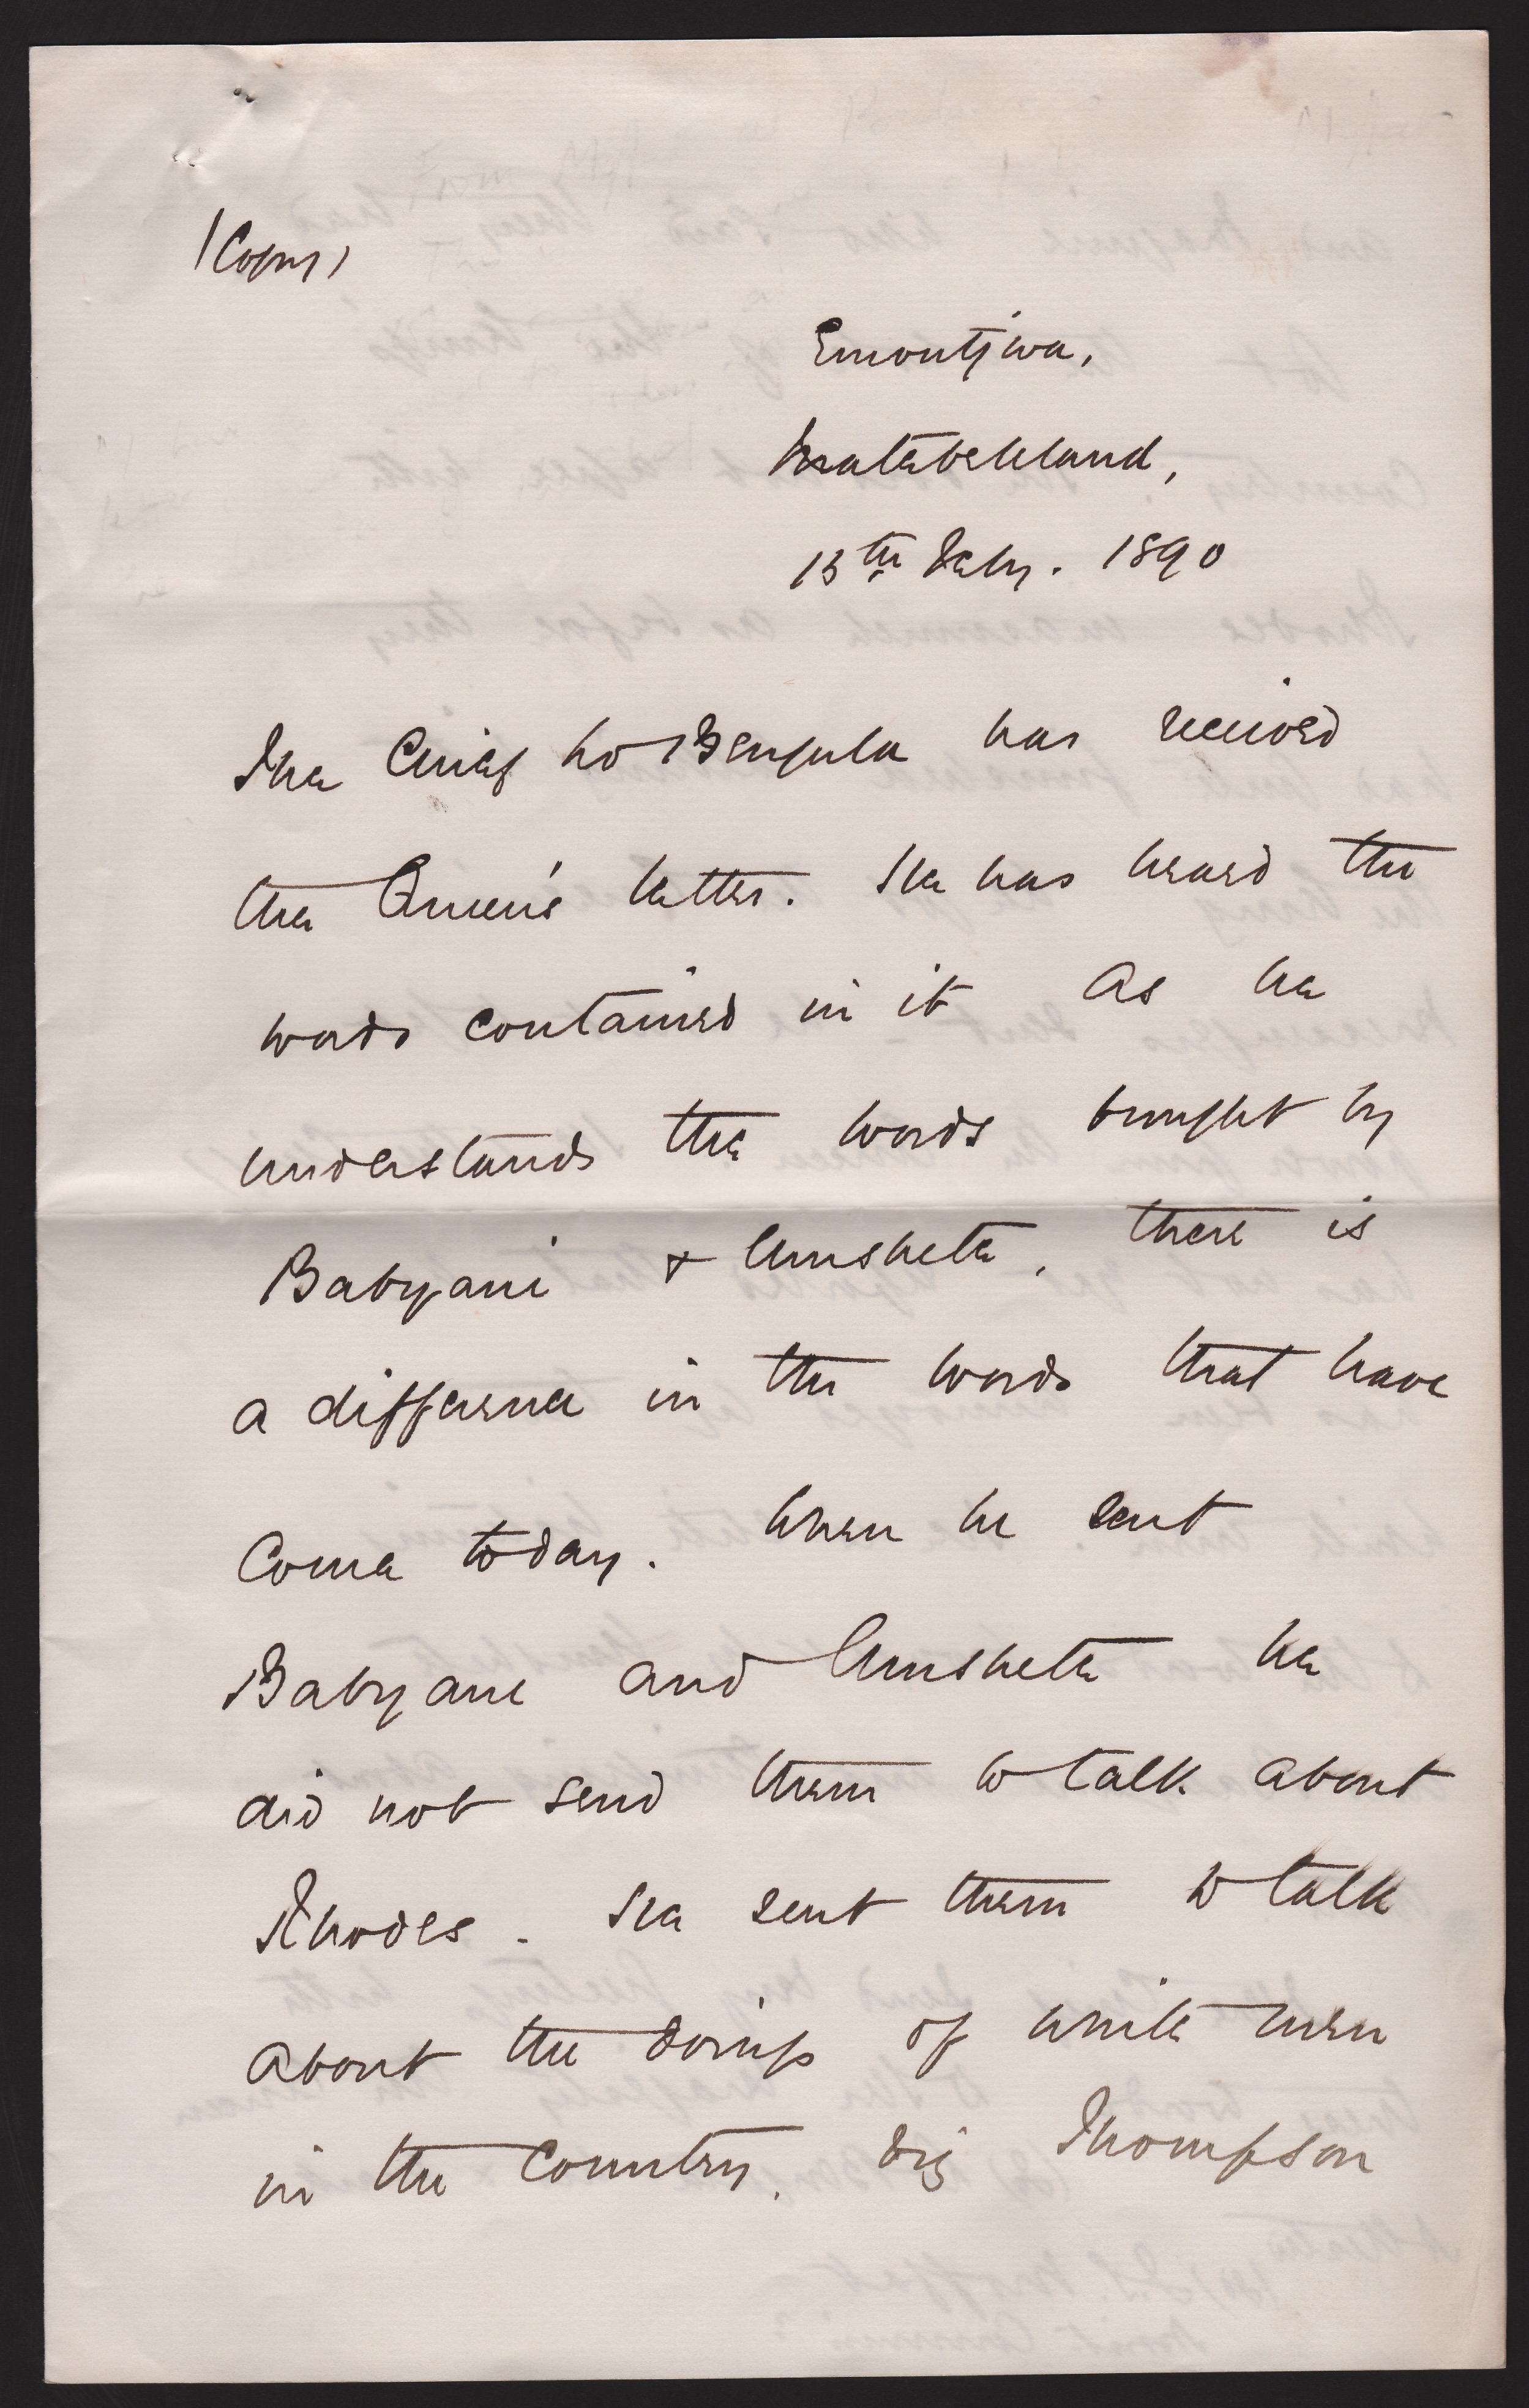 (Copy)
Emontjwa,
Matabeleland,
13th Feby. 1890
The Chief Lo Bengula has received
the Queen's letter. He has heard the
words contained in it As he
understands the words brought by
Babyani & Umsheté, there is
a difference in the words that have
come today. When he sent
Babyane and Umsheté he
did not send them to talk about
Rhodes. He sent them to talk
about the doings of white men
in the country. Thompson